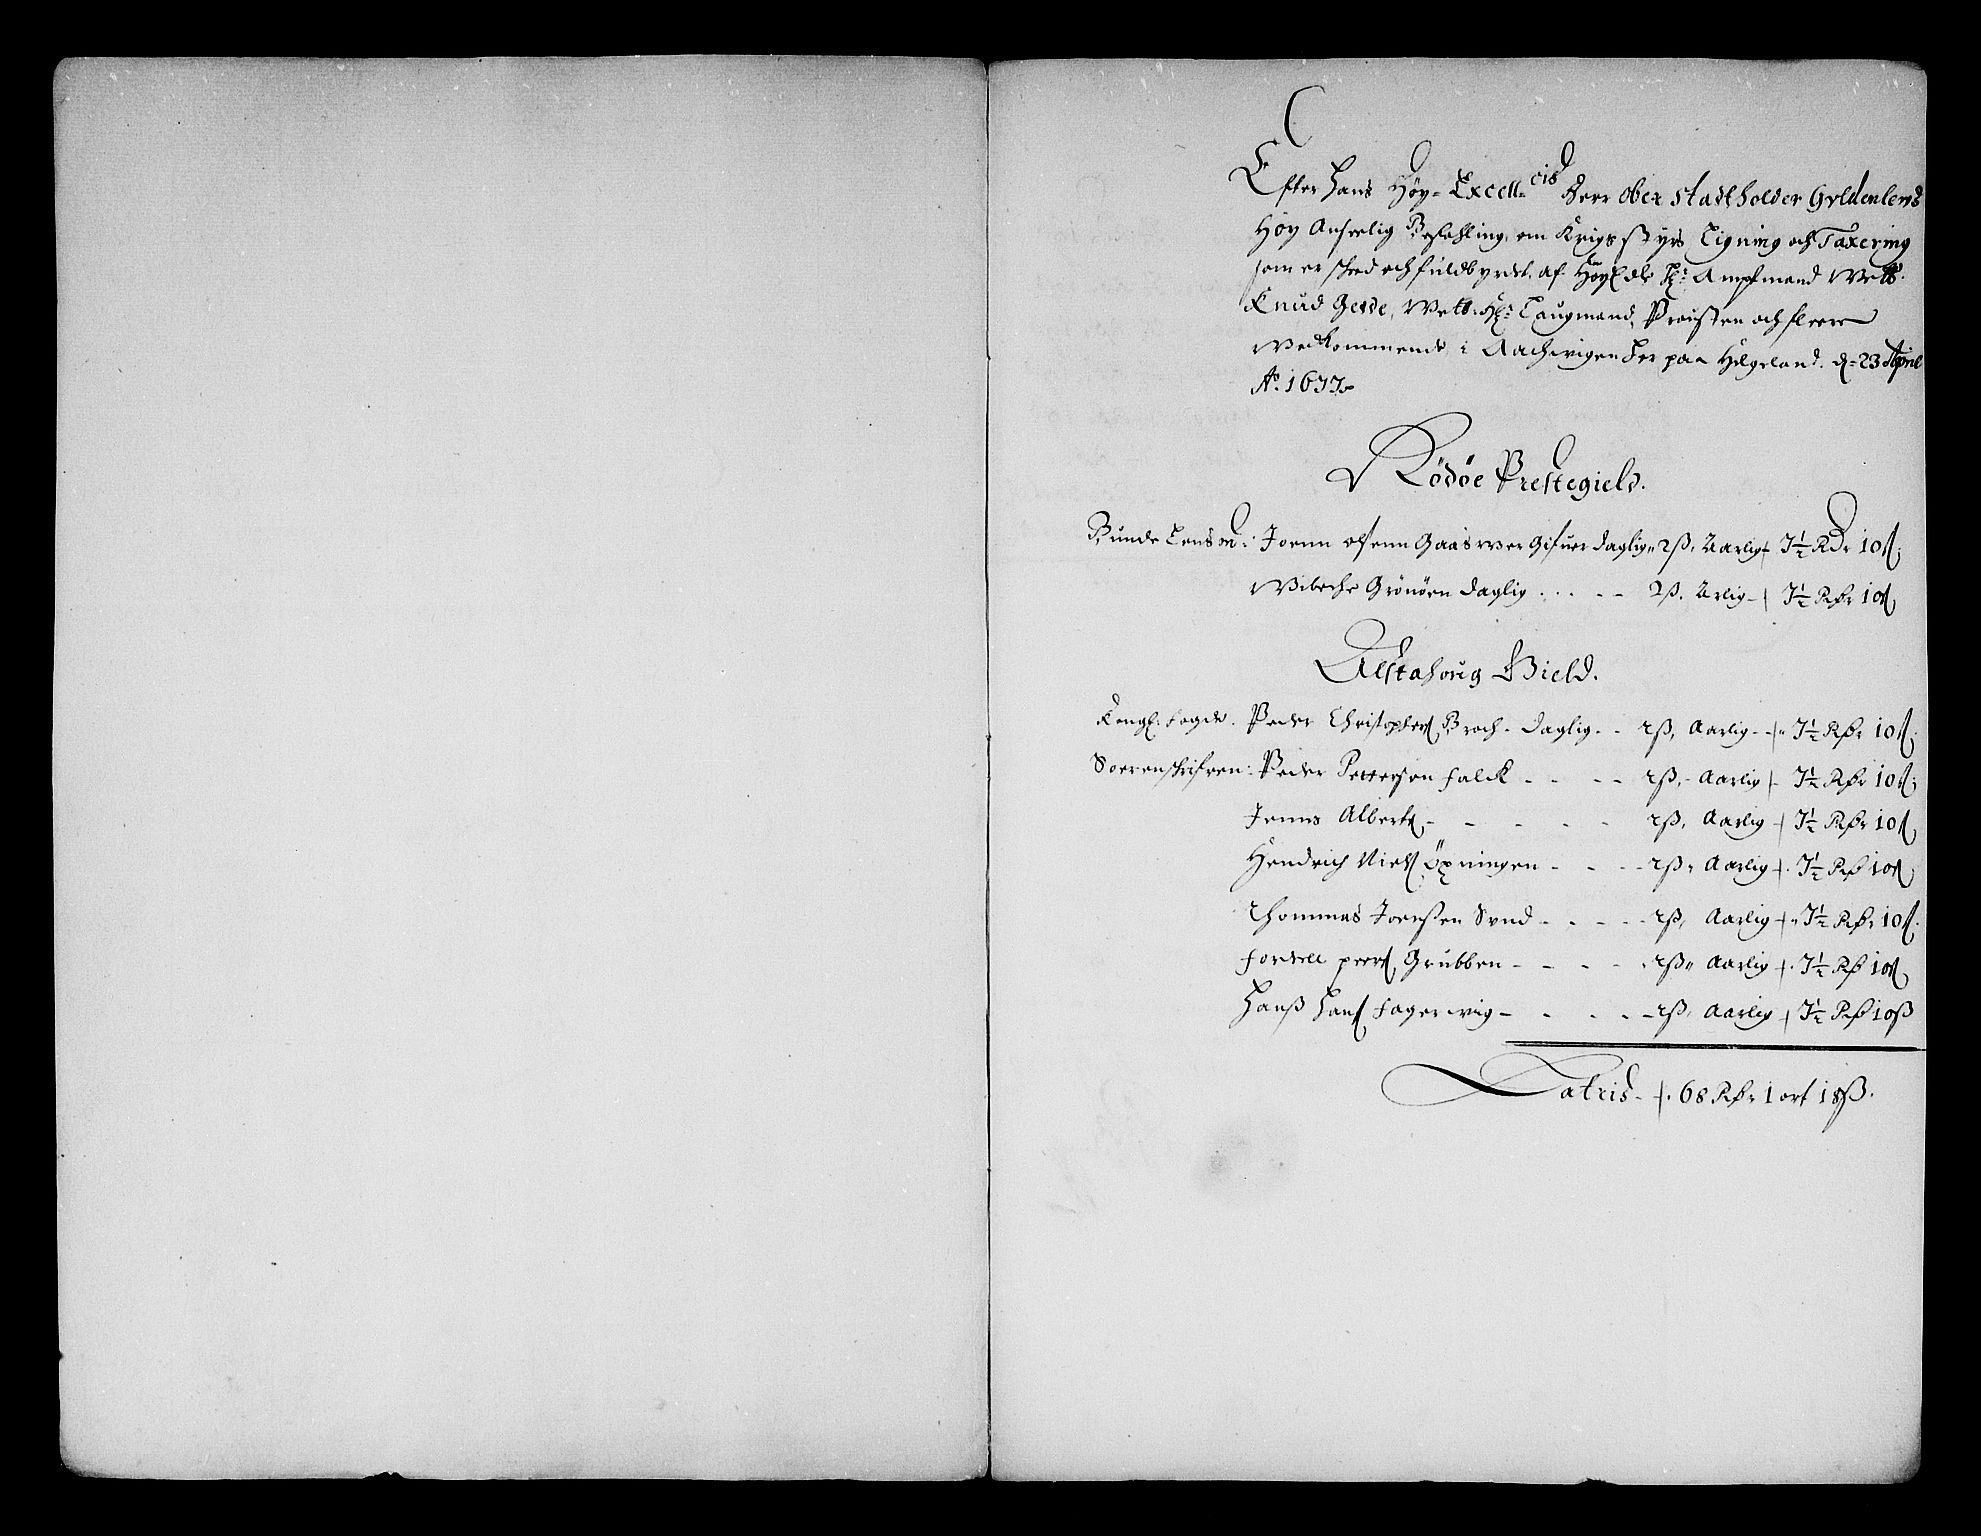 Efter Hans Höy- Excell-cis Herr Ober Stadtholder Gyldenlews
Höy Anseelig Befahling, om Krigs styrs Ligning och Taxering
som er sked och fuldbyrdet, af HöyEdle Hr: Ampfmand Welb:
Knud Gedde, Welb: Hr: Laugmand, Prousten och fleere
Wedkommende i Aachwigen her paa Helgeland. d: 23 April
Ao. 1677.
Rödöe Prestegield.
Bunde Lensm: Joenn Gaaswer Gifuer daglig 2ß, Aarlig 7½ Rdr 10ß
Wibeche Grönöen daglig . . . - - 2ß. Arlig - 7½ Rdr 10ß
Alstahoug Gield.
Kongl: fogde. Peder Christophers Broch - daglig - - 2ß, Aarlig - 7½ Rdr 10ß
Soerenskrifren: Peder Pettersen falck - - - - 2ß, - Aarlig - 7½ Rdr 10ß
Jenns Alberts - - - - - 2ß, Aarlig - 7½ Rdr 10ß
Hendrich Niels Öpningen - - - - 2ß, Aarlig - 7½ Rd 10ß
Thommas Joenssen Sund - - - - - 2ß, Aarlig - 7½ Rdr 10ß.
peers Grubben - - - - 2ß, Aarlig - 7½ Rd 10ß
Hanß Hans fagerwig - - - - - 2ß, Aarlig - 7½ Rd 10ß
Latris - 68 Rdr 1 ort 18ß.